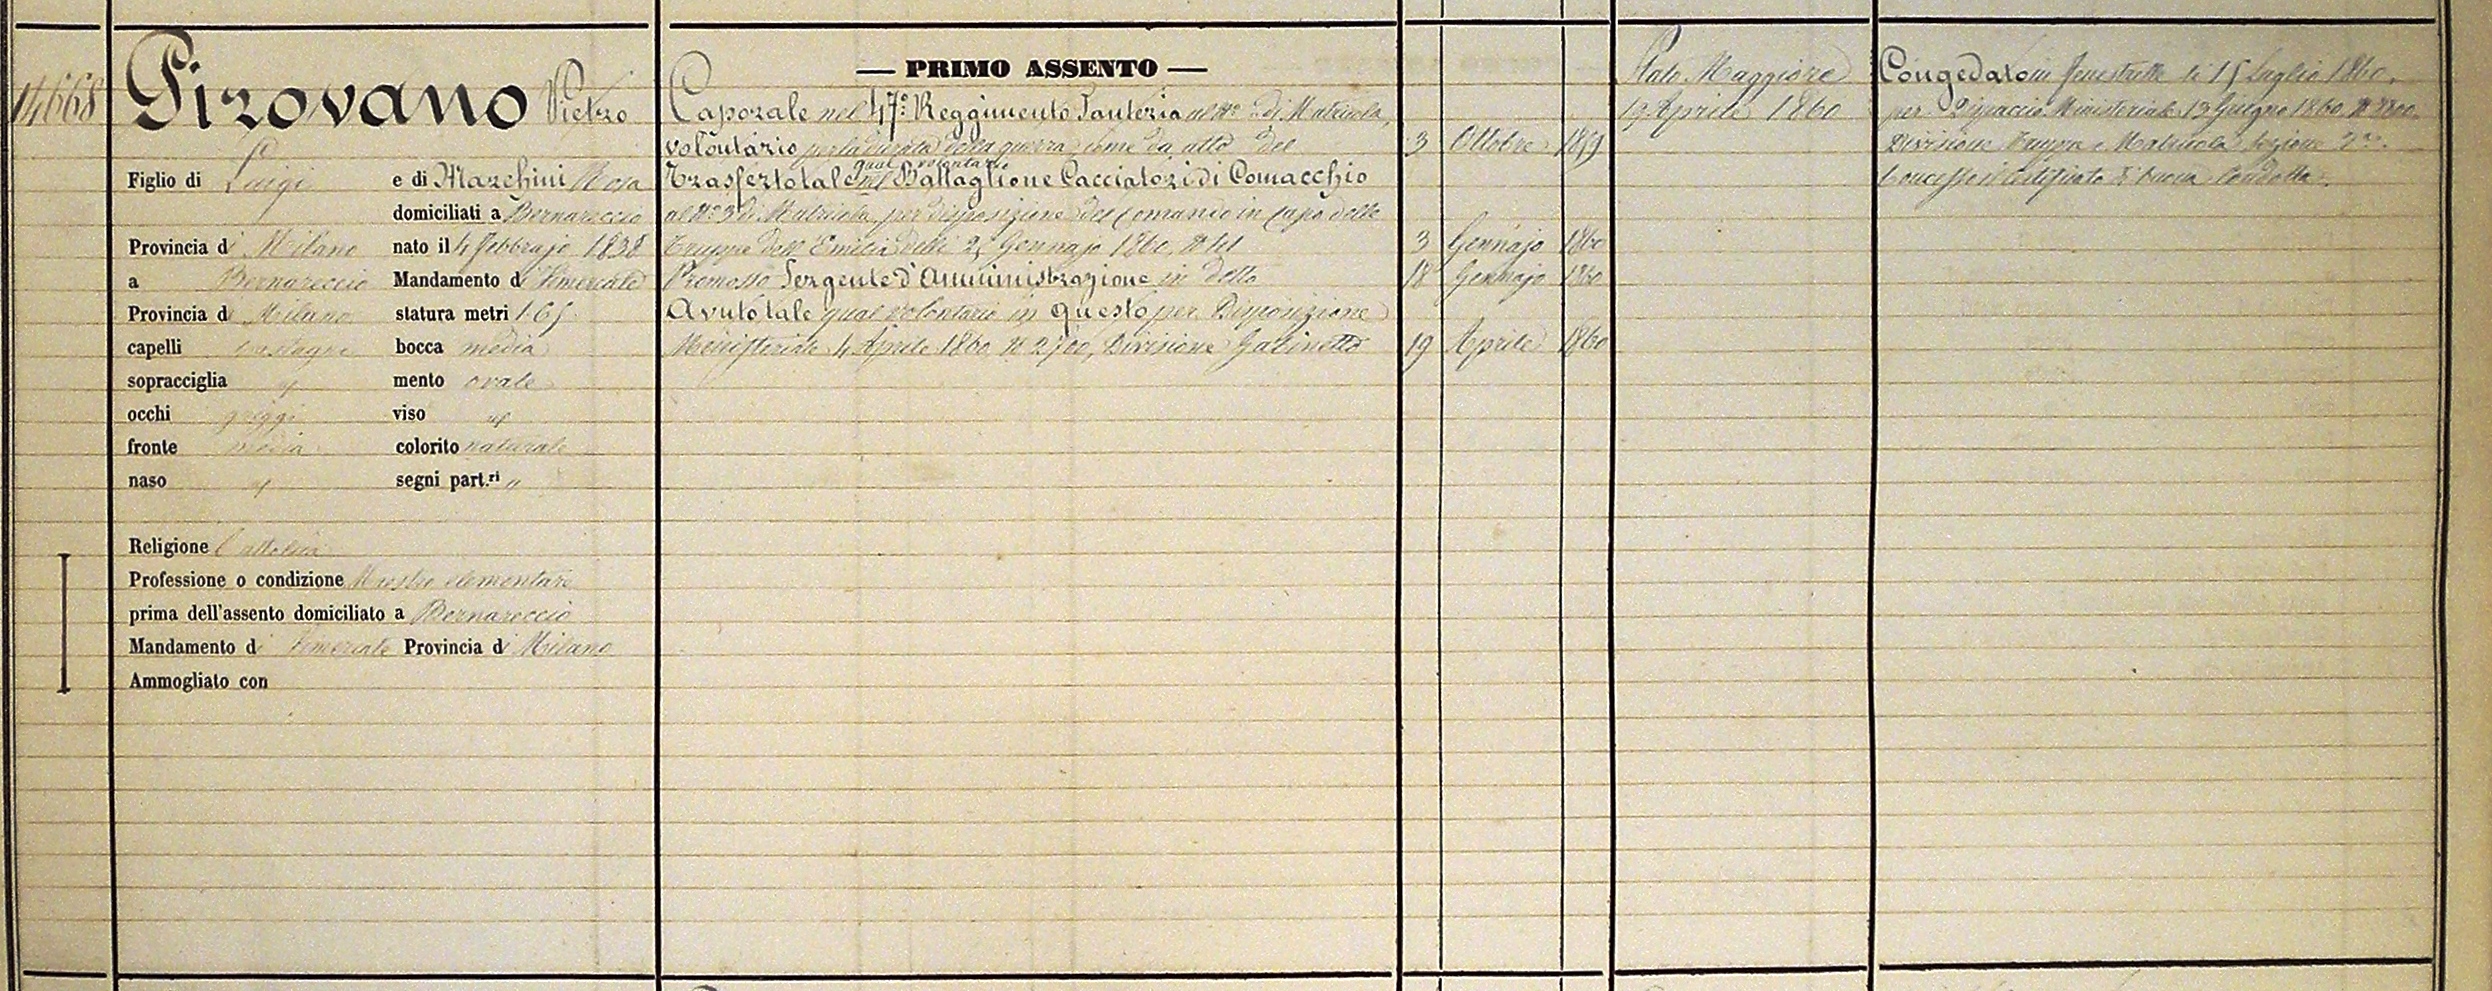 14668
Pirovano Pietro
Figlio di Luigi e di Marchini Rosa
domiciliati a Bernareccio
Provincia di Milano nato il 4 febbrajo 1838
a Bernareccio Mandamento di Vimercate
Provincia di Milano statura metri 1.65
capelli castagni bocca media
sopracciglia id mento ovale
occhi griggi viso id
fronte media colorito naturale
naso id segni part.ri "
Religione Cattolica
Professione o condizione Maestro elementare
prima dell'assento domiciliato a Bernareccio
Mandamento di Vimercate Provincia di Milano
Ammogliato con
— PRIMO ASSENTO —
Caporale nel 47° Reggimento Fanteria al N° " di Matricola,
volontario per la durata della guerra come da atto del 3 Ottobre 1859
qual volontario
Trasferto tale nel Battaglione Cacciatori di Comacchio
al N° 3 di Matricola per disposizione del Comando in capo delle
Truppe dell'Emilia delli 25 Gennajo 1860, N° 3 Gennajo 1860
Promosso Sergente d'Amministrazione in detto 18 Gennajo 1860
Avuto tale qual volontario in questo per Disposizione
Ministeriale 4 Aprile 1860 N° 2700, Divisione Gabinetto 19 Aprile 1860
Stato Maggiore
19 Aprile 1860
Congedato in Fenestrelle li 15 Luglio 1860,
per Dispaccio Ministeriale 13 Giugno 1860 N°
Divisione Truppa e Matricola Sezione
Concesso il Certificato di buona Condotta.